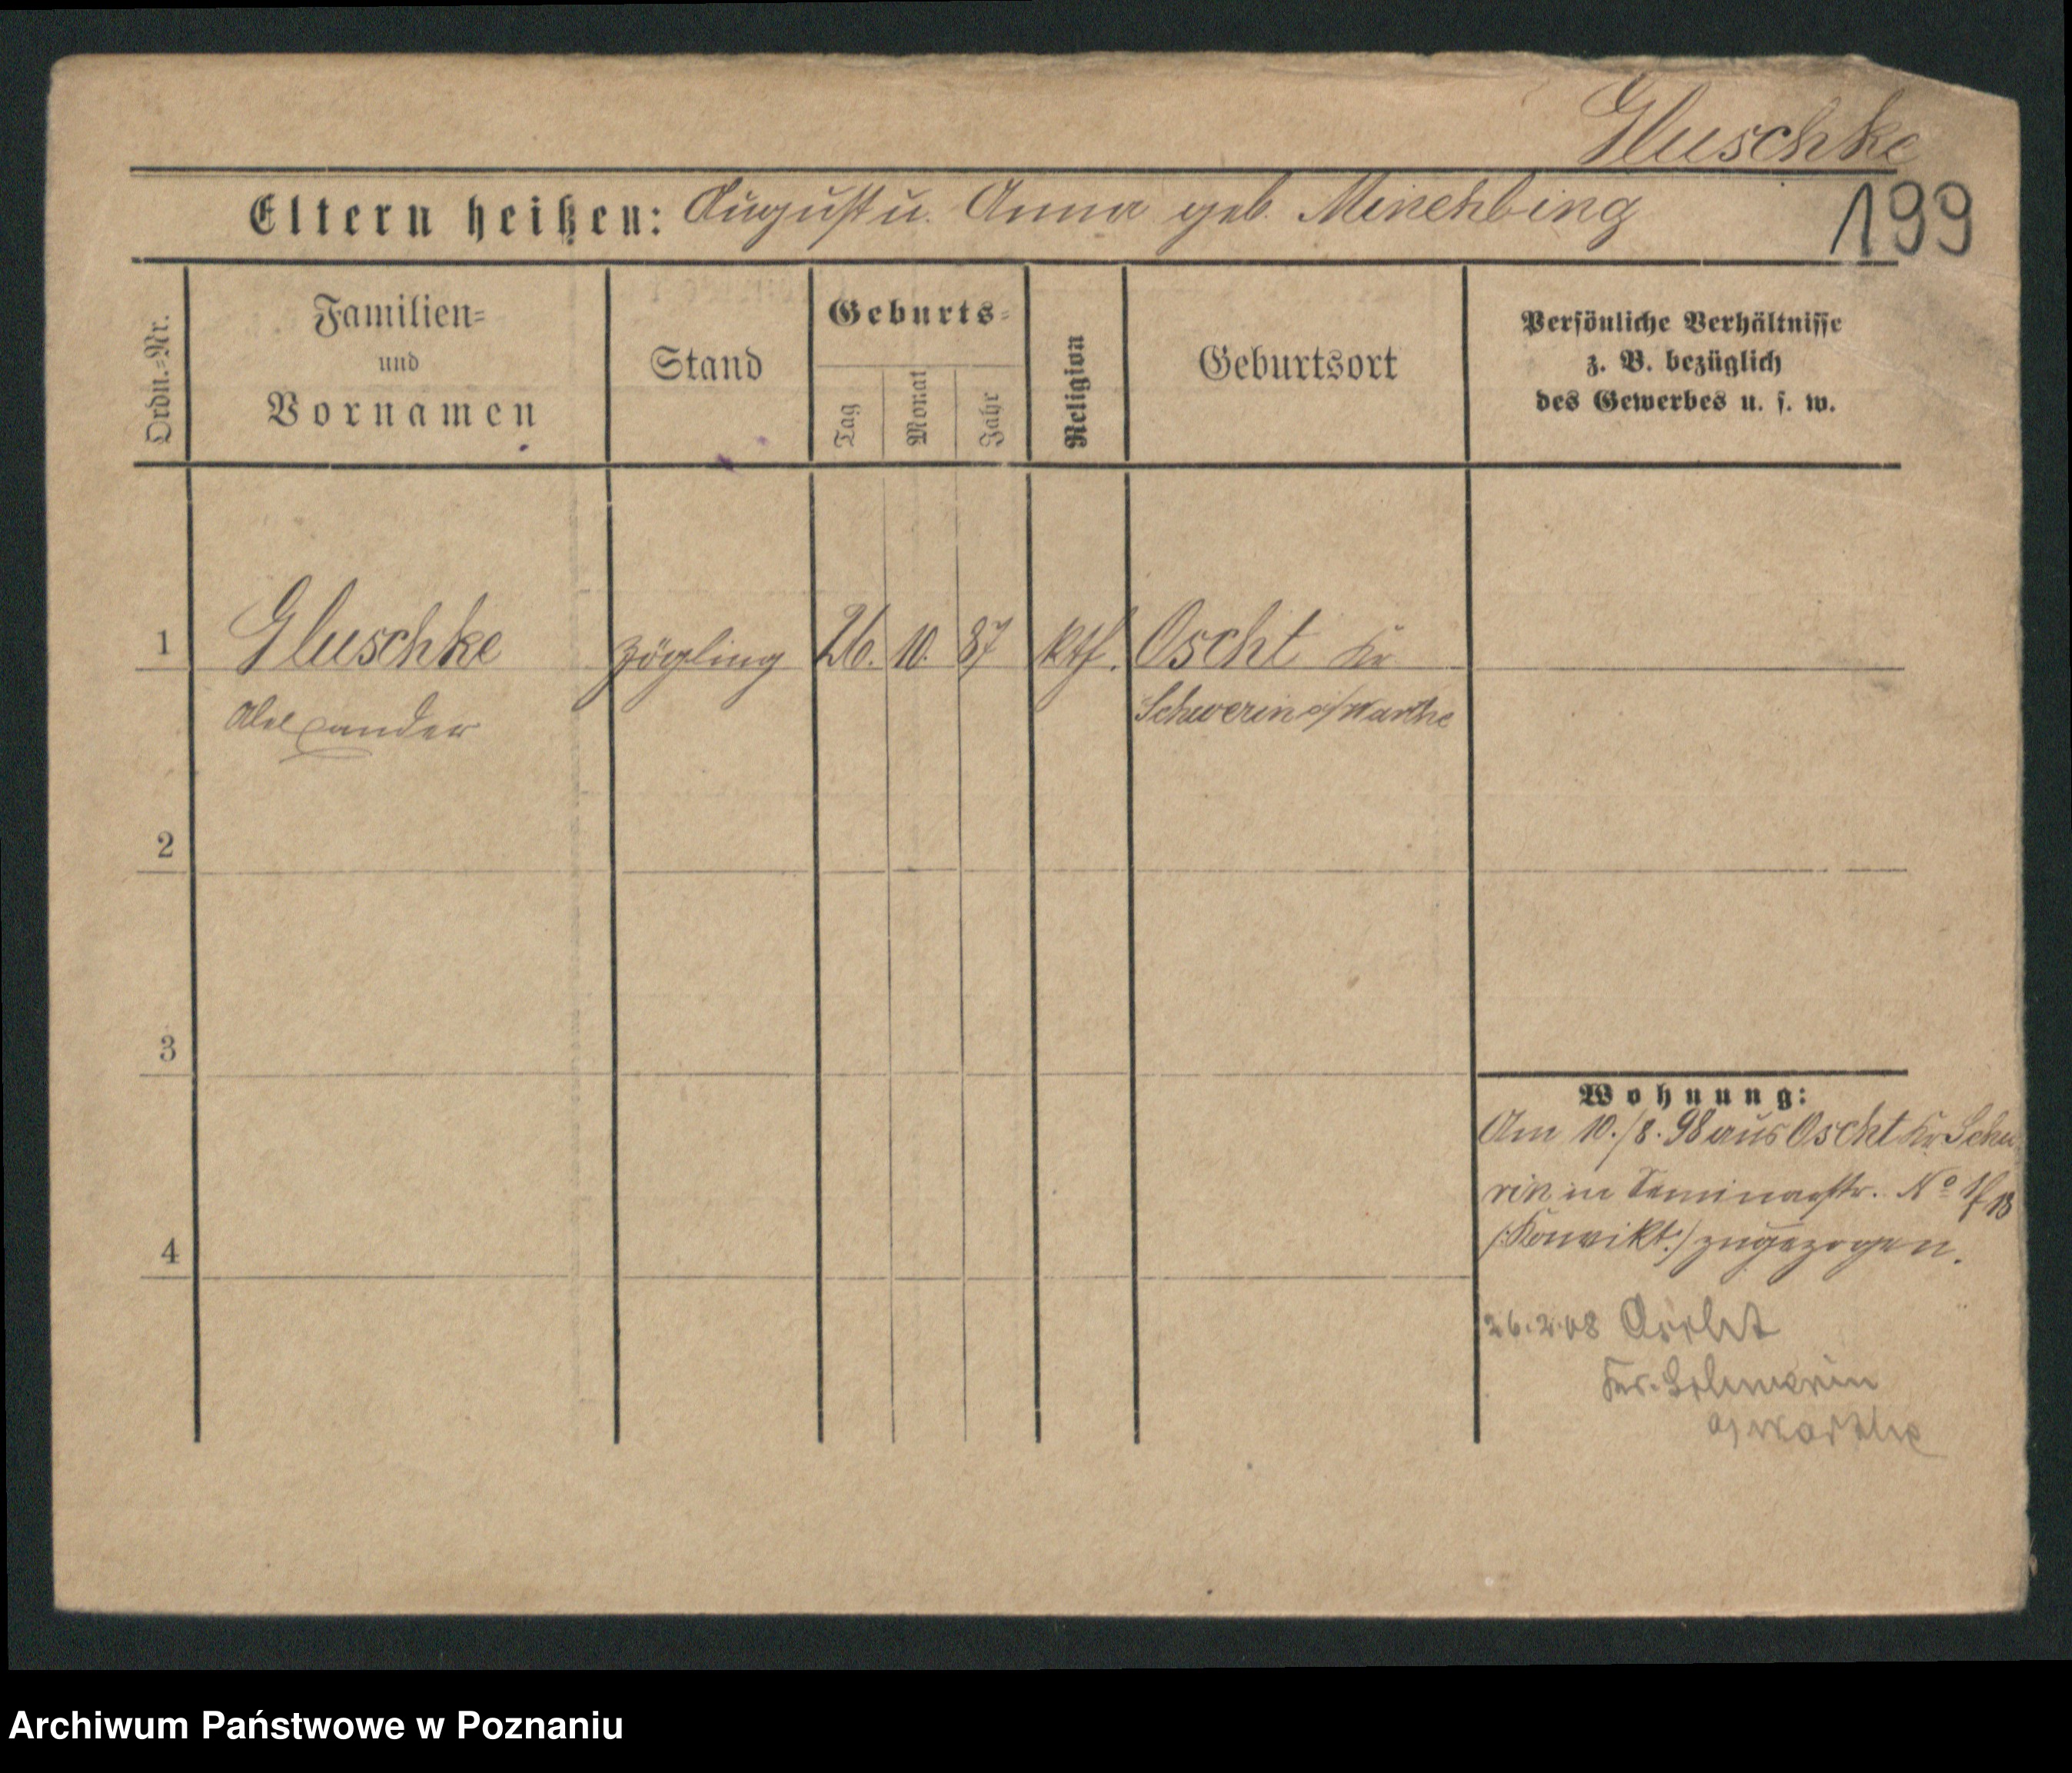 Gluschke
Eltern heißen: August u. Anna geb. Minchbing
199
Ordn.=Nr.
Familien=
und
Vornamen
Stand
Geburts=
Tag
Monat
Jahr
Religion
Geburtsort
Persönliche Verhältnisse
z. B. bezüglich
des Gewerbes u. s. w.
1 Gluschke Zögling 26. 10. 87 kth. Oscht Kr
Alexander Schwerin a/Warthe
2
3
4
Wohnung:
Am 10./8. 98 aus Oscht Kr Schwe
rin in Seminarstr. No
/:Konvikt:/ zugezogen.
26.2.08 Oscht
Kr. Schwerin
a/Warthe
Archiwum Państwowe w Poznaniu